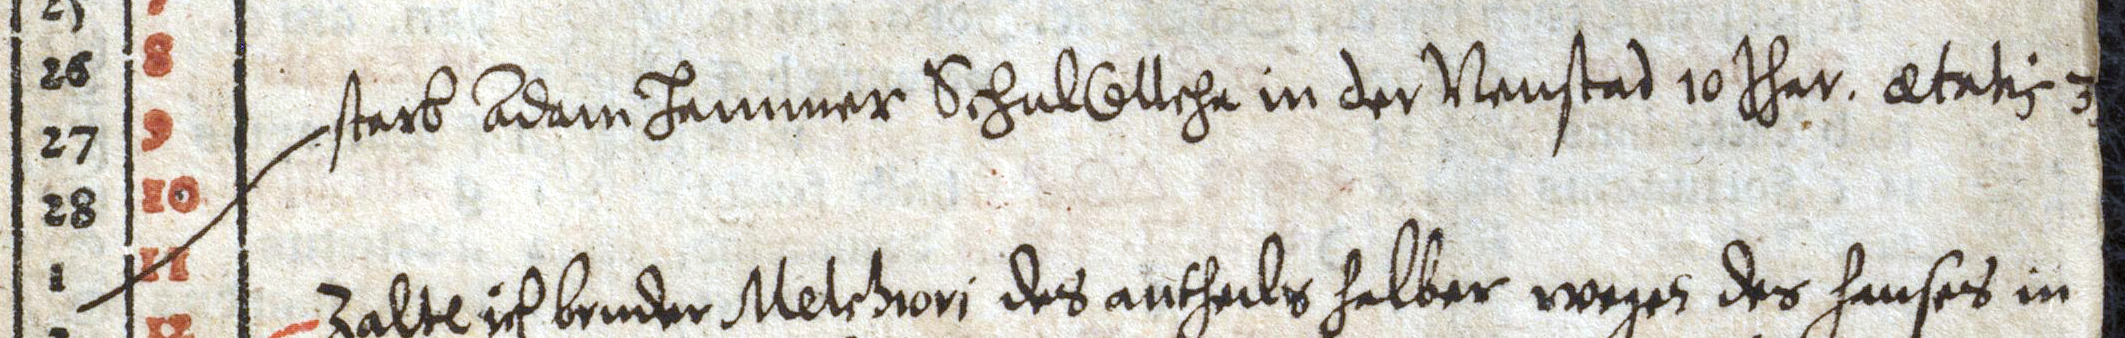 26 8
starb Adam Hammer Schul Collega in der Neustad 10 Uhr. ætatis 3
27 9
28 10
1 11
Zalte ich bruder Melchiori des antheils halber wegen des hauses in